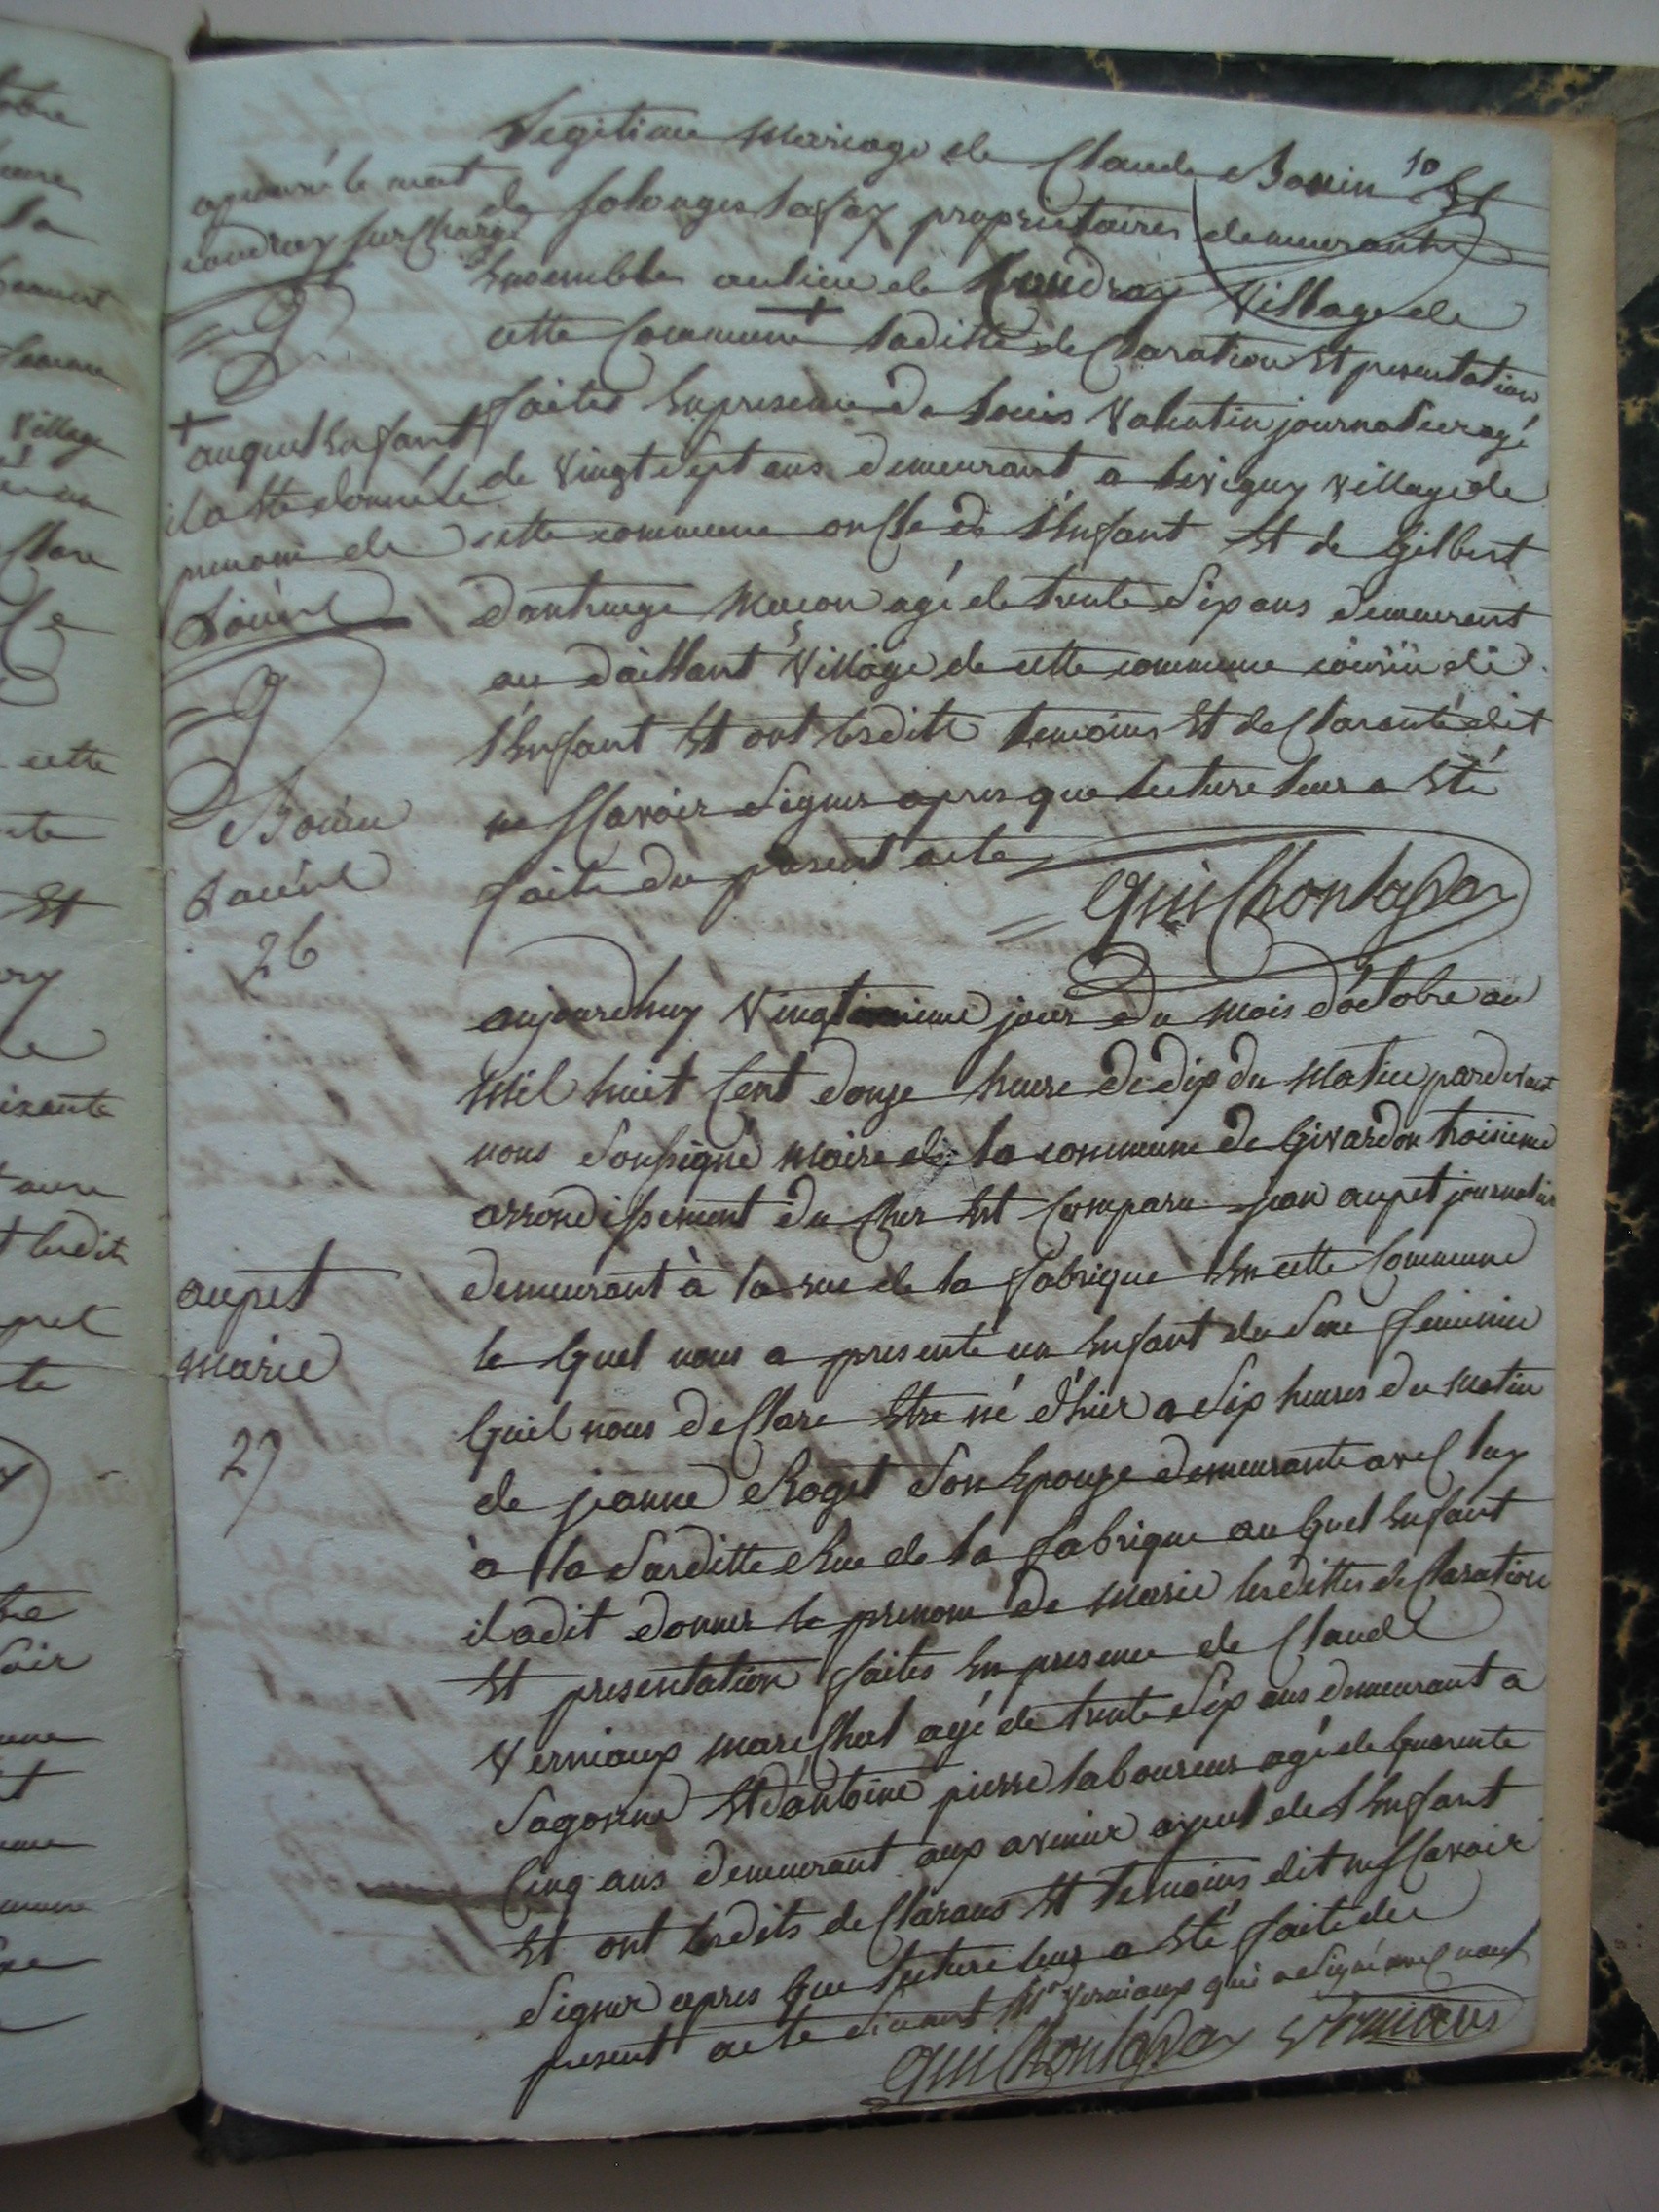 10
Legitime mariage de Claude Bouin Et
de Solonges lafay proprietaires demeurante
Ensemble au lieu de Coudray Village de
cette Commune + laditte declaration Et presentation
faites En presence de louis Valentin journalier agé
de Vingt Sept ans demeurant a Levigny village de
cette commune oncle de l'Enfant Et de Gilbert
dantruege Macon agé de trente Six ans demeurant
au daillant Village de cette commune cousin de
l'Enfant Et ont lesditts temoins Et declarante dit
ne scavoir Signer apres que lecture leur a Eté
faite du present acte
Guilhonlafay
approuvé le mot
coudray surchargé
+
auquel Enfant
il a Ete donné le
prenom de
Bouin
26
aujourdhuy Vingtieme jour du mois d'octobre an
Mil huit Cent douze heure de dix du Matin pardevant
nous Soussigné maire de la commune de Givardon troisieme
arrondissement du Cher Est Comparu jean aupet journalier
demeurant à la rue de la fabrique En cette Commune
le quel nous a presenté un Enfant du Sexe feminin
quil nous declare Etre né d'hier a Six heures du Matin
de jeanne Roget Son Epouze demeurante avec luy
à la Sarditte Rue de la fabrique au quel Enfant
il a dit donner le prenom de Marie lesdittes declaration
Et presentation faites En presence de Claude
Verniaux marechal agé de trente Six ans demeurant a
Sagonne Et d'antoine pierre laboureur agé de quarente
Cinq ans demeurant aux avenir ayeul de l'Enfant
Et ont lesdits declarans Et temoins dit ne scavoir
Signer apres que lecture leur a Eté faite du
present acte Verniaux qui a Signé avec nous
Guilhonlafay Verniaux
aupet
marie
27